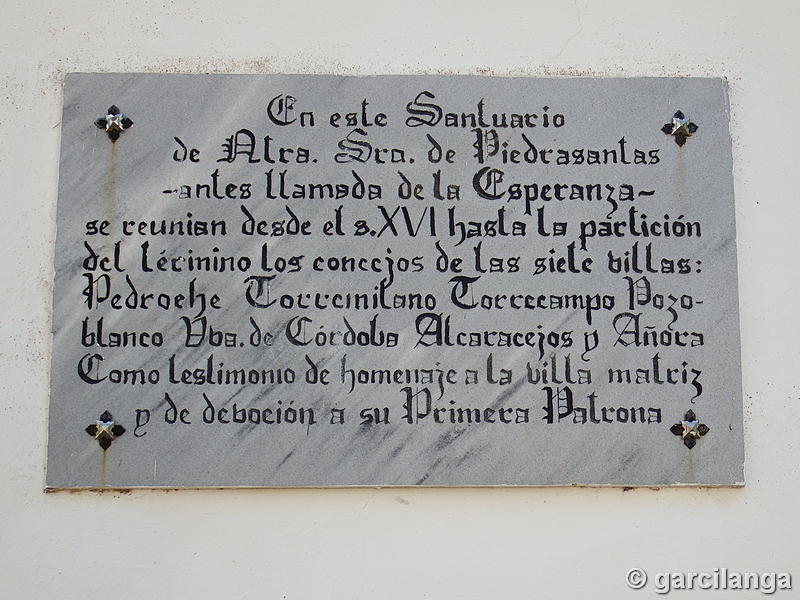 En este Santuario
de Ntra. Sra. de Piedrasantas
-antes llamada de la Esperanza-
se reunian desde el s.XVI hasta la partición
del término los concejos de las siete villas:
Pedroche Torremilano Torrecampo Pozo-
blanco Vva. de Córdoba Alcaracejos y Añora
Como testimonio de homenaje a la villa matriz
y de devoción a su Primera Patrona
© garcilanga